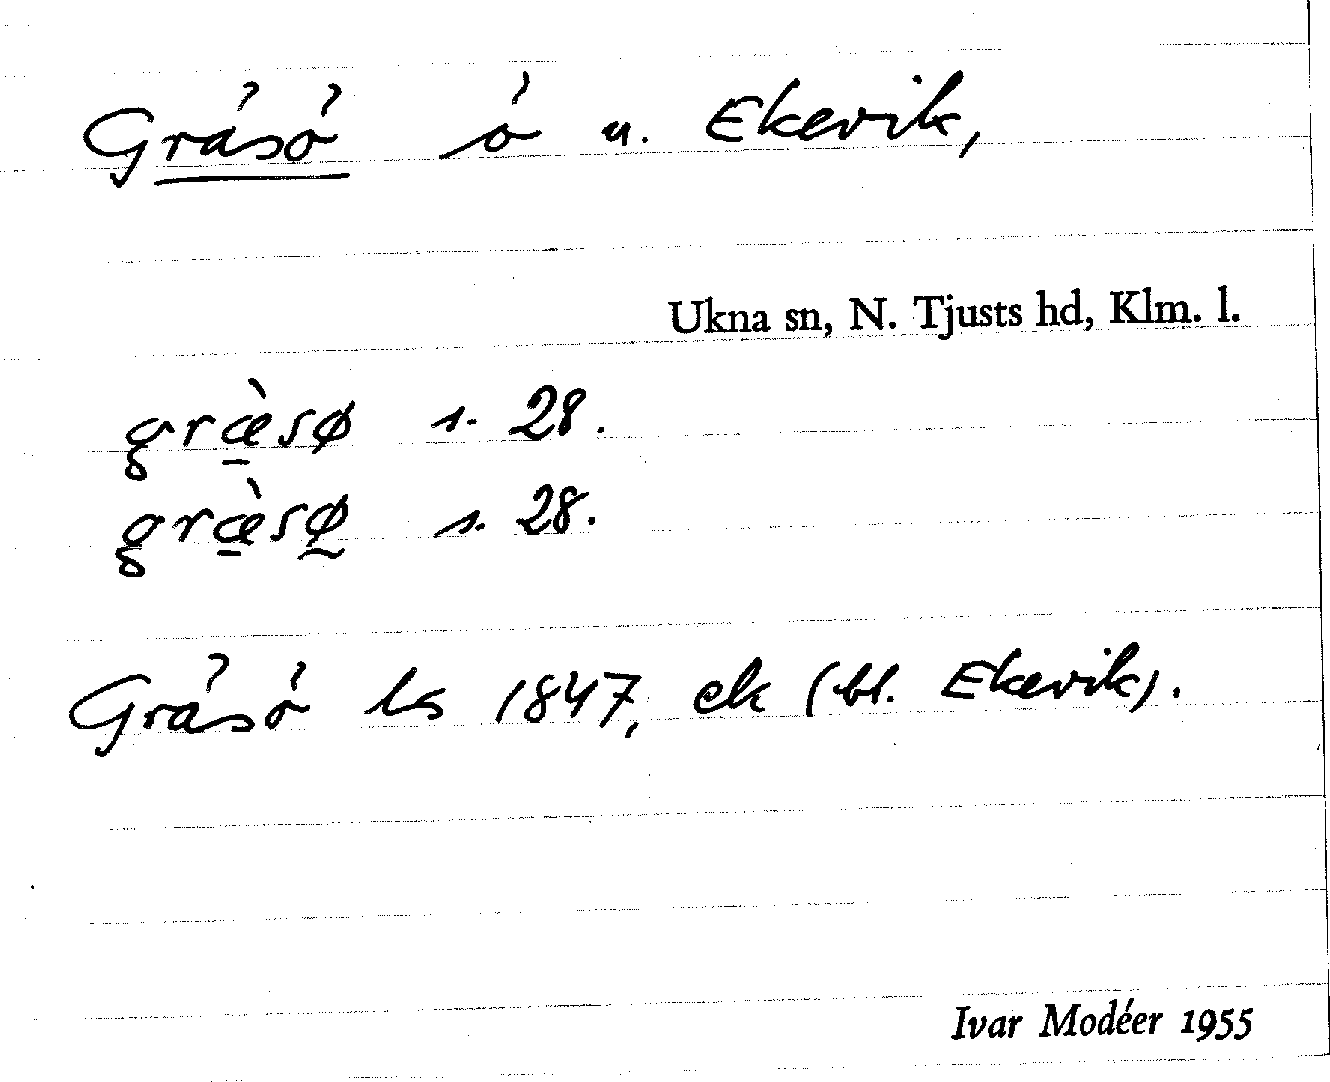 Gräsö ö u. Ekevik,
Ukna sn, N. Tjusts hd, Klm. l.
græ̠̀sø s. 28.
græ̠̀sø̰ s. 28.
Gräsö ls 1847, ek (bl. Ekevik).
Ivar Modéer 1955